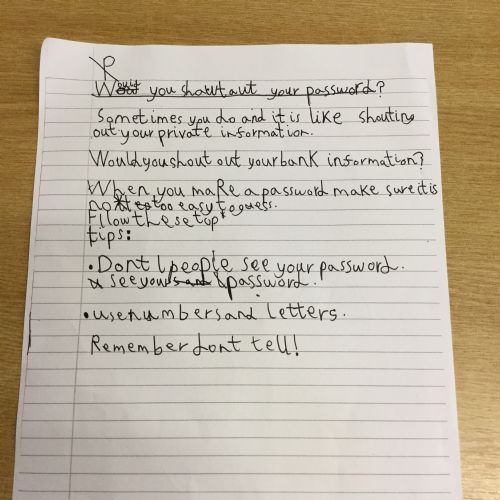 Would you shout out your password?
Sometimes you do and it is like shouting
out your private information.
Would you shout out your bank information?
When you make a password make sure it is
not too easy to guess.
Fllow these top
tips:
• Dont l people see your password.
see your password.
• use numbers and letters.
Remember dont tell!